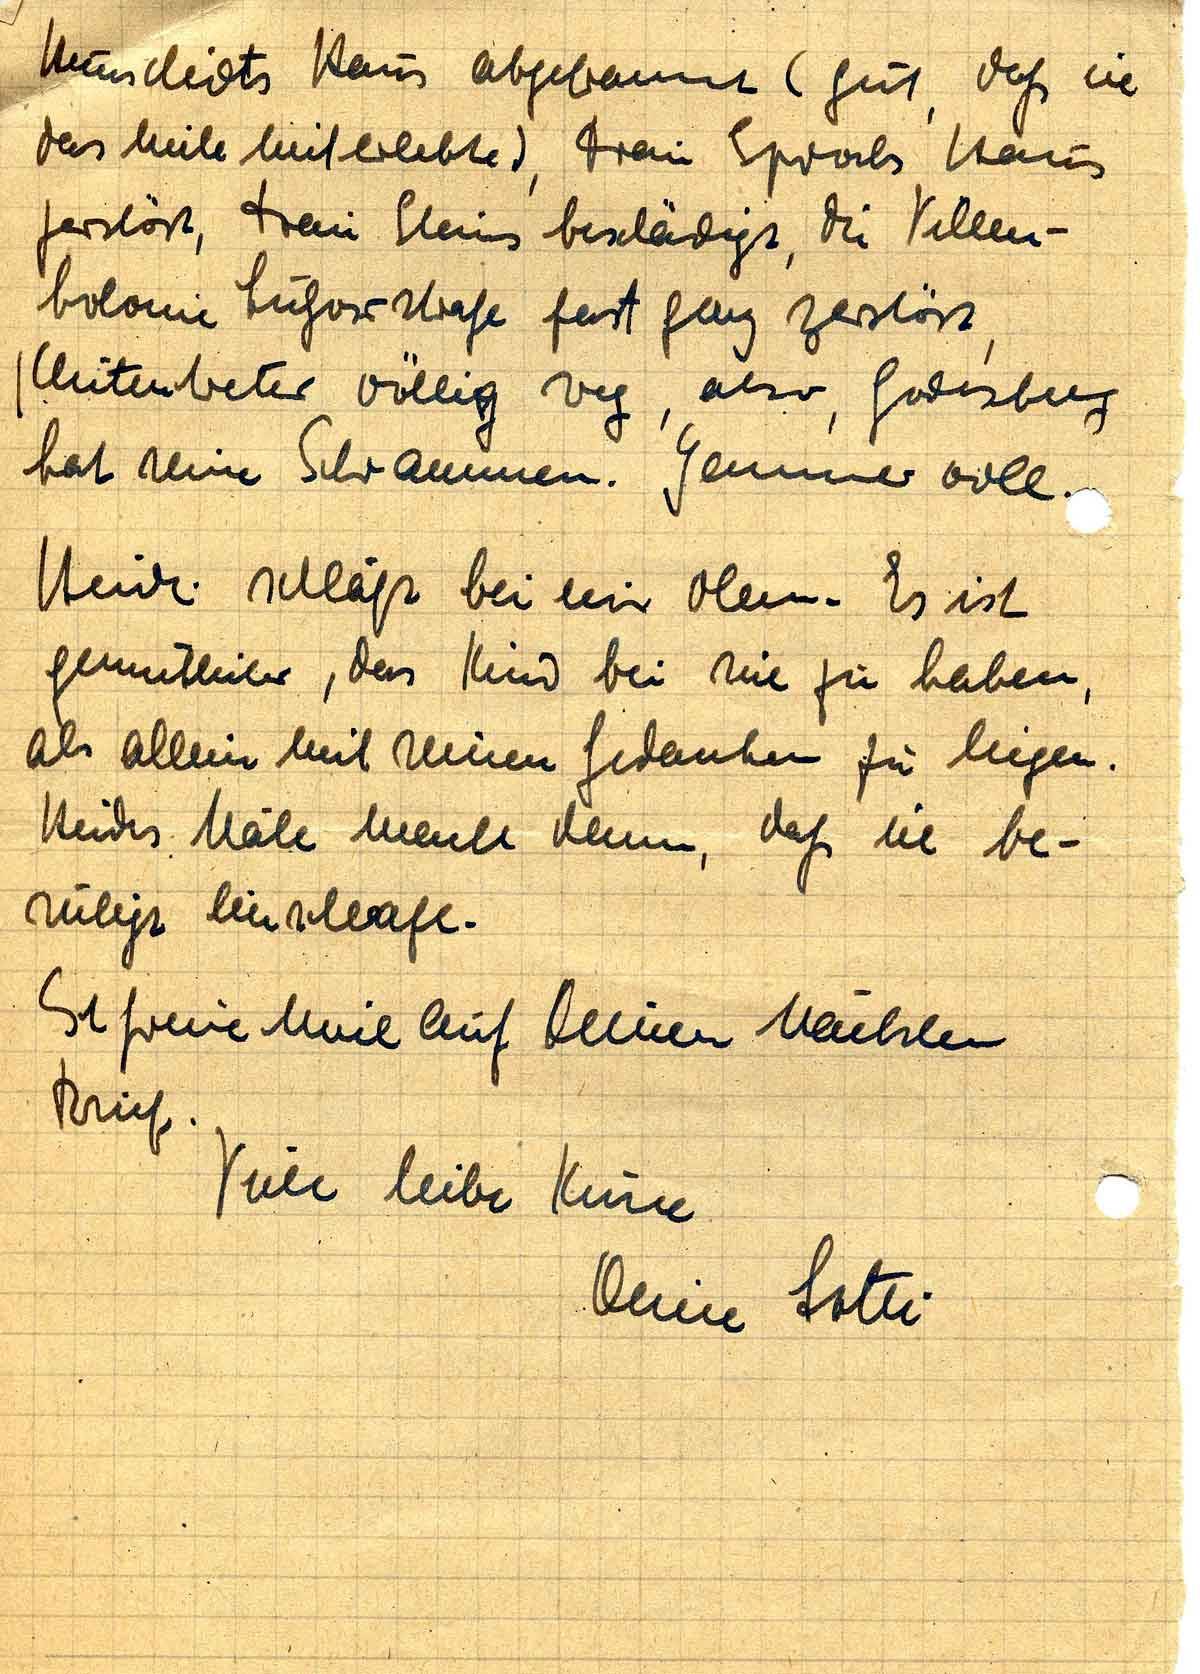 Haus abgebrannt (gut, daß sie
das nicht miterlebte), Frau Haus
zerstört, Frau Steins beschädigt, die Villen-
kolonie straße fast ganz zerstört,
völlig weg, also, Godesberg
hat seine Schrammen. Jammervoll.
Heidi schläft bei mir oben. Es ist
gemütlicher, das Kind bei sich zu haben,
als allein mit seinen Gedanken zu liegen.
Heides Nähe macht dann, daß sie be-
ruhigt einschlafe.
Ich freue mich auf Deinen nächsten
Brief.
Viele liebe Küsse
Deine Lotti